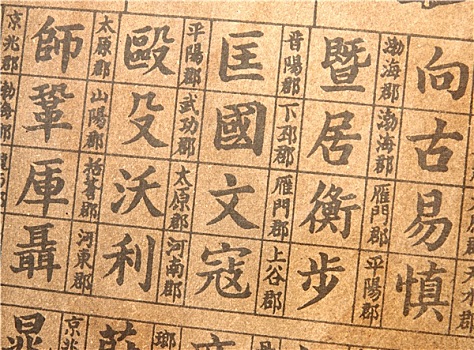 向
古
易
慎
渤海郡 暨
渤海郡 居
雁門郡 衡
平陽郡 步
晉陽郡 匡
下邳郡 國
雁門郡 文
上谷郡 寇
平陽郡 毆
武功郡 殳
太原郡 沃
河南郡 利
太原郡 師
山陽郡 鞏
括蒼郡 厙
河東郡 聶
京兆
京兆郡
渤海郡